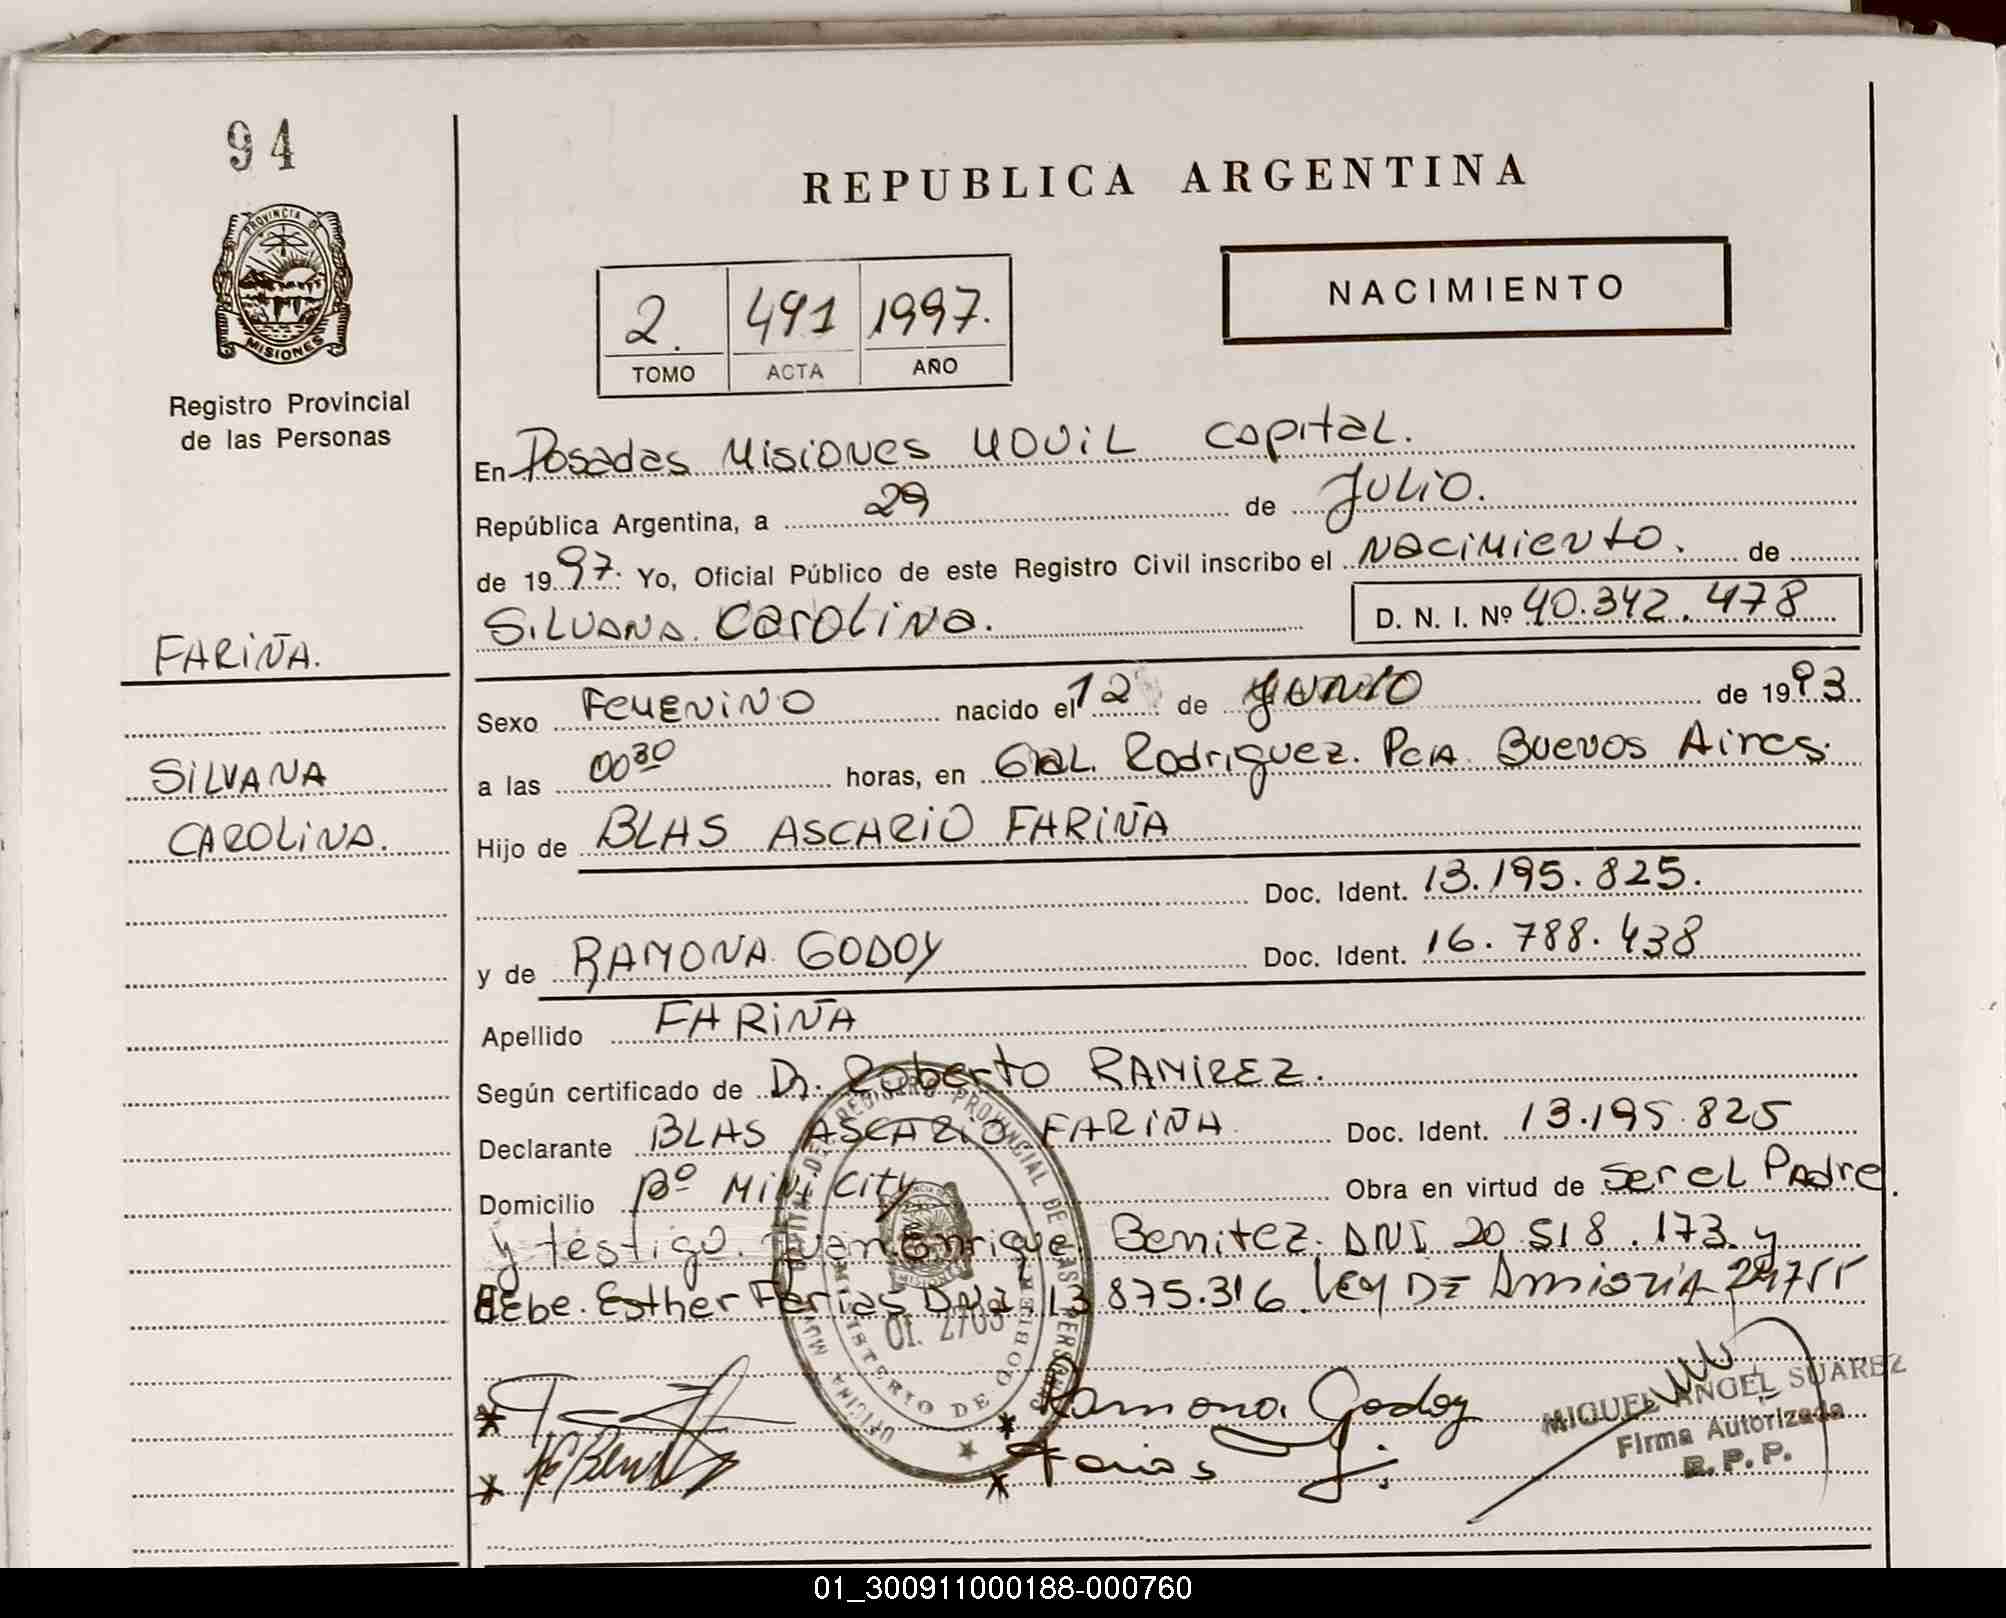 94
PROVINCIA DE
MISIONES
Registro Provincial
de las Personas
FARIÑA.
SILVANA
CAROLINA.
REPUBLICA ARGENTINA
2. 491 1997.
TOMO ACTA AÑO
NACIMIENTO
En Posadas Misiones Movil Capital.
República Argentina, a 29 de Julio.
de 1997. Yo, Oficial Público de este Registro Civil inscribo el Nacimiento. de
Silvana Carolina. D. N. I. Nº 40.342.478
Sexo Femenino nacido el 12 de Junio de 1993
a las 0030 horas, en Gral. Rodriguez. Pcia. Buenos Aires.
Hijo de BLAS ASCARIO FARIÑA
Doc. Ident. 13.195.825.
y de RAMONA GODOY Doc. Ident. 16.788.438
Apellido FARIÑA
Según certificado de Dr. Roberto RAMIREZ.
Declarante BLAS ASCARIO FARIÑA Doc. Ident. 13.195.825
Domicilio Bº Mini City Obra en virtud de ser el Padre.
y testigo. Juan Enrique Benitez. DNI 20.518.173 y
Bebe. Esther Farias DNI 13.875.316. Ley De Amnistia 24755
OFICINA MOVIL CAPITAL DEL REGISTRO PROVINCIAL DE LAS PERSONAS
MINISTERIO DE GOBIERNO
01. 2703
Ramona Godoy
Farias
MIGUEL ANGEL SUAREZ
Firma Autorizada
R. P. P.
01_300911000188-000760